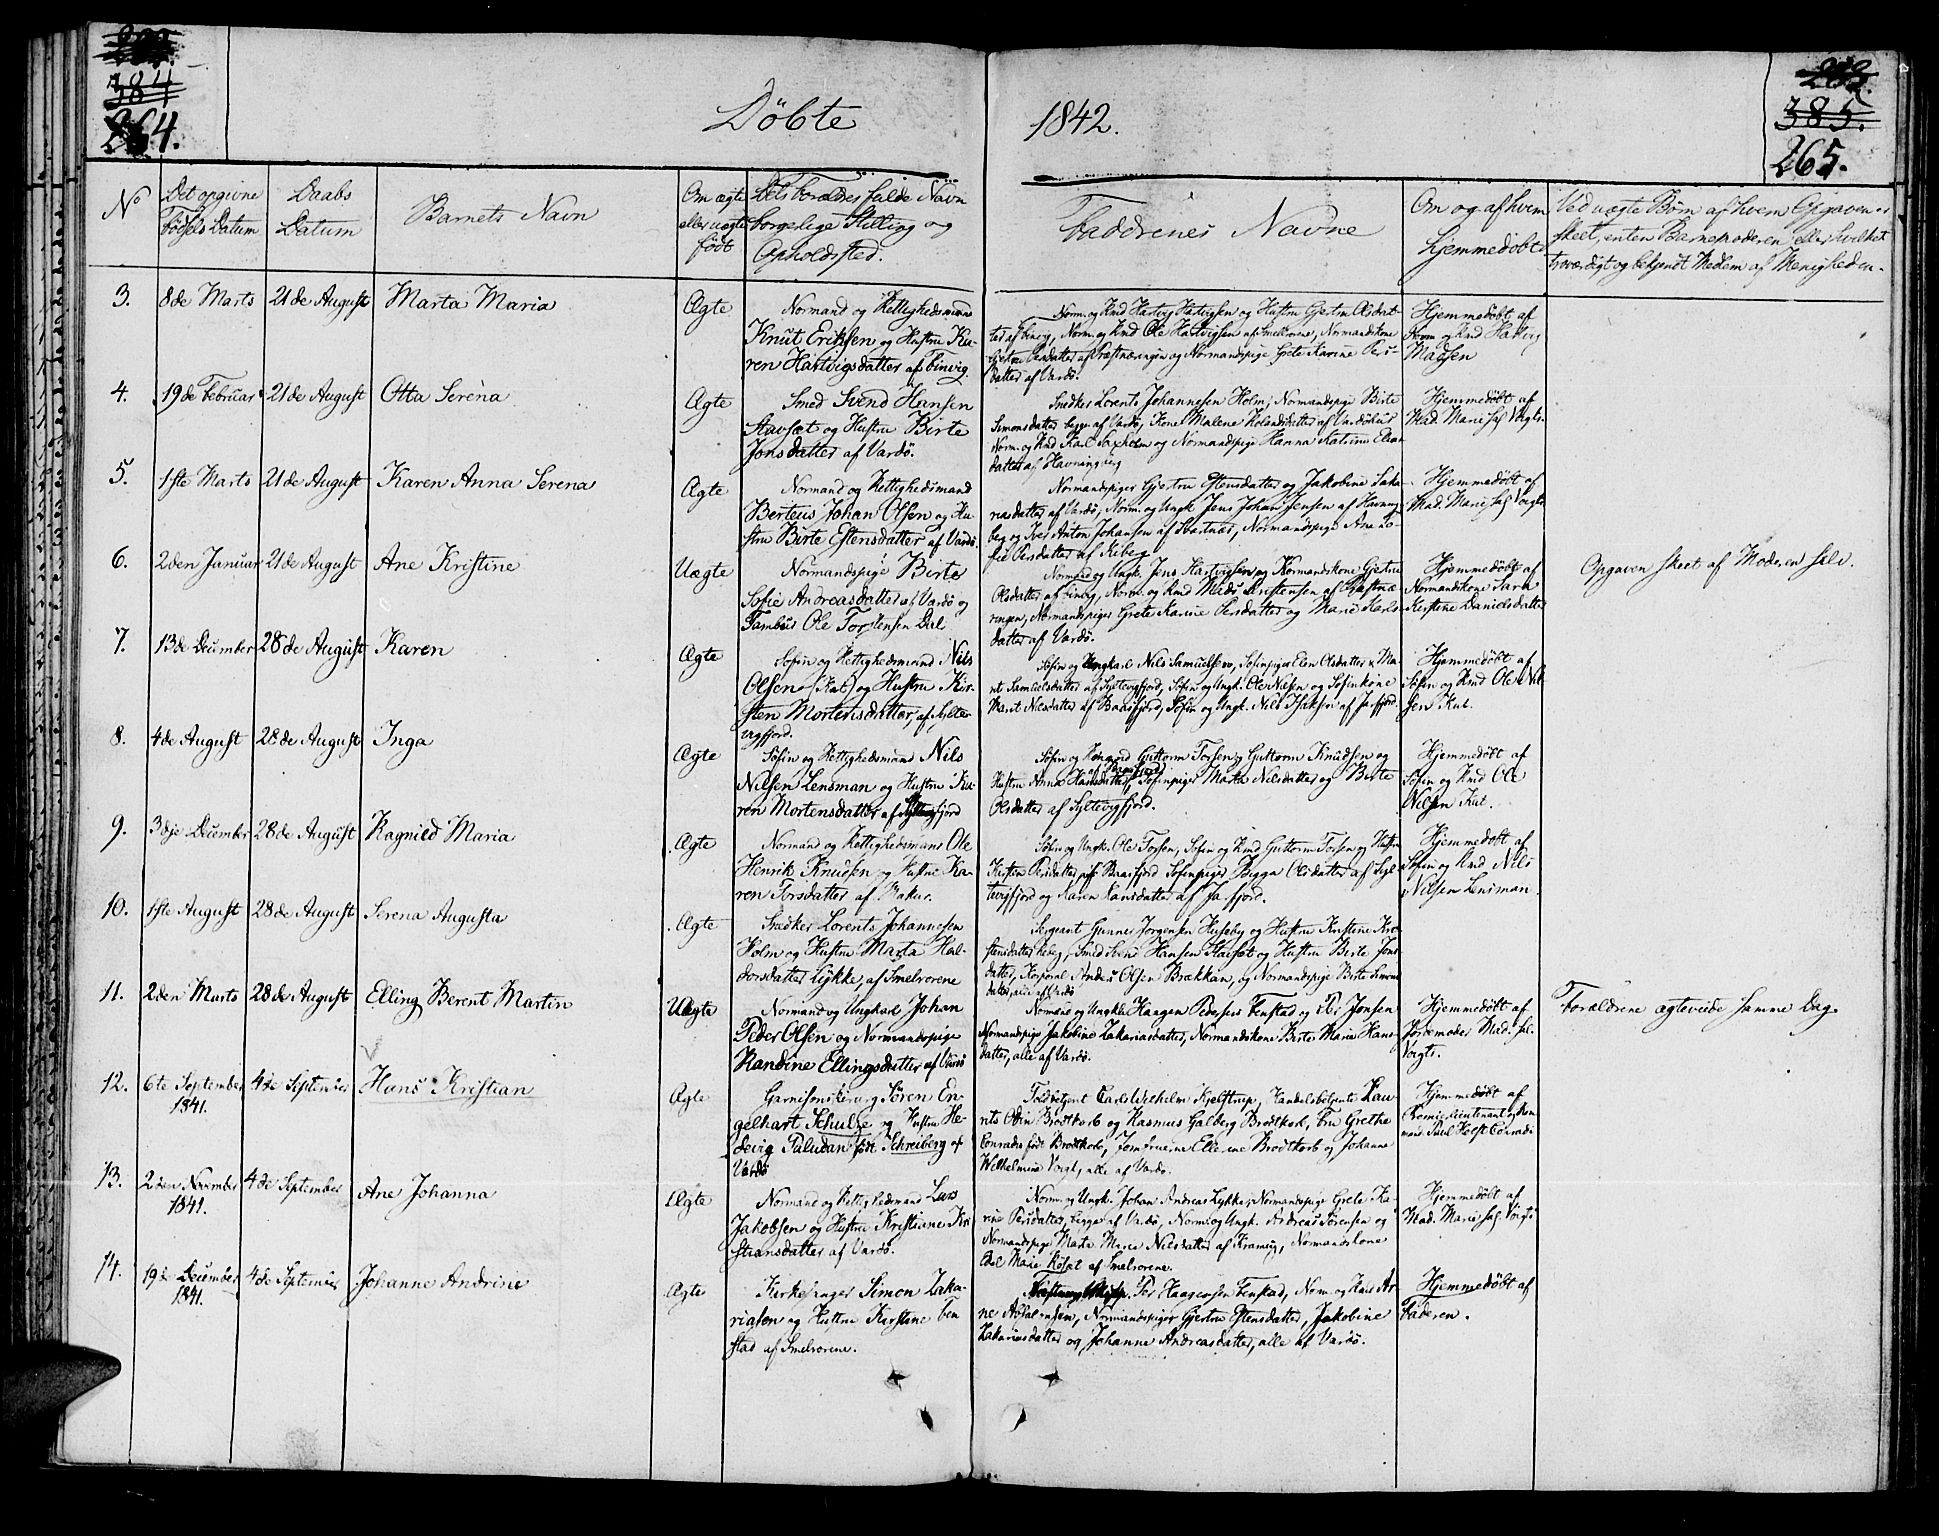 384
264.
Döbte
1842.
385.
265.
No
Det opgivne
Födsels Datum
Daabs
Datum
Barnets Navn
Om ægte
eller uægte
född
Dets Forældres fulde Navn
borgerlige Stilling og
Opholdssted.
Faddrenes Navne
Om og af hvem
hjemmedöbt
Ved uægte Börn af hvem Opgaven er
skeet, enten Barnemoderen eller hvilket
troværdigt og bekjendt Medlem af Menigheden.
3. 8de Marts 21de August Marta Maria Ægte
Normand og Rettighedsmand
Knut Eriksen og Hustru Ka-
ren Hartvigsdatter af Finvig.
Norm. og Kmd Hartvig Hartvigsen og Hustru Gjertru Olsdat-
ter af Finvig, Norm. og Kmd Ole Hartvigsen af Smelrorene, Normandskone
Gjertru Persdatter af Præstnæringen og Normandspige Grete Karine Pers-
datter af Vardö.
Hjemmedöbt af
Norm og Kmd Hartvig
Madsen
4. 19de Februar 21de August Otta Serena Ægte
Smed Svend Hansen
Stavsæt og Hustru Birte
Jonsdatter af Vardö.
Snedker Lorents Johannesen Holm, Normandspige Birte
Simonsdatter begge af Vardö, Kone Malene Rolandsdatter af Vardöhus
Norm. og Kmd Karl Saxholm og Normandspige Hanna Katrine Elias
datter af Havningberg
Hjemmedöbt af
Mad. Marie Sal. Voigts.
5. 1ste Marts 21de August Karen Anna Serena Ægte
Normand og Rettighedsmand
Berteus Johan Olsen og Hu-
stru Birte Estensdatter af Vardö.
Normandspiger Gjertru Estensdatter og Jakobine Saka-
riasdatter af Vardö, Norm. og Ungk. Jens Johan Jensen af Havning-
berg og Iver Anton Johansen af Svartnæs, Normandspige Ane So-
fie Persdatter af Kiberg
Hjemmedöbt af
Mad. Marie Sal. Voigts
6. 2den Januar 21de August Ane Kristine Uægte
Normandspige Birte
Sofie Andreasdatter af Vardö og
Tambur Ole Torstensen Dal
Normand og Ungk. Jens Hartvigsen og Normandskone Gjertru
Olsdatter af Finvig, Norm. og Kmd Mads Kristensen af Præstnæ
ringen, Normandspiger Grete Karine Persdatter og Marie Karls
datter af Vardö.
Hjemmedöbt af
Normandskone Sara
Kirstine Danielsdatter
Opgaven skeet af Moderen selv.
7. 13de December 28de August Karen Ægte
Söfin og Rettighedsmand Nils
Olsen (Kut) og Hustru Kir-
sten Mortensdatter, af Sylte-
vigfjord.
Söfin og Ungkarl Nils Samuelsen, Söfinpiger Elen Olsdatter & Ma-
rit Samuelsdatter af Syltevigfjord, Söfin og Ungk. Ole Nilsen og Söfinkone
Marit Nilsdatter af Baasfjord, Söfin og Ungk. Nils Isaksen af Jarfjord.
Hjemmedöbt af
Söfin og Kmd Ole Nil-
sen Kut.
8. 4de August 28de August Inga Ægte
Söfin og Rettighedsmand Nils
Nilsen Lensman og Hustru Ka-
ren Mortensdatter af Syltevigfjord
Söfin og Konmand Guttorm Torsen, Guttorm Knudsen og
Hustru Anna Hansdatter af Baasfjord, Söfinpiger Marta Nilsdatter og Birte
Olsdatter af Syltevigfjord.
Hjemmedöbt af
Söfin og Kmd Ole
Nilsen Kut.
9. 3dje December 28de August Ragnild Maria Ægte
Normand og Rettighedsmand Ole
Henrik Knudsen og Hustru Ka-
ren Torsdatter af Makur.
Söfin og Ungk. Ole Torsen, Söfin og Kmd Guttorm Torsen og Hustru
Kirsten Persdatter af Baasfjord Söfinpiger Bigga Olsdatter af Syl-
tevigfjord og Karen Hansdatter af Jarfjord.
Hjemmedöbt af
Söfin og Kmd Nils
Nilsen Lensman.
10. 1ste August 28de August Serena Augusta Ægte
Snedker Lorents Johannesen
Holm og Hustru Marta Hal-
dorsdatter Lykke, af Smelrorene
Sergeant Gunner Jörgensen Huseby og Hustru Kirstine Kri
stensdatter Keberg, Smed Svend Hansen Stavsæt og Hustru Birte Jons
datter, Korporal Anders Olsen Brækkan, og Normandspige Birte Simons
datter, alle af Vardö
11. 2den Marts 28de August Elling Berent Martin Uægte
Normand og Ungkarl Johan
Peder Olsen og Normandspige
Randine Ellingsdatter af Vardö
Normand og Ungkle Haagen Pedersen Fenstad og Per Jonsen
Normandspige Jakobine Zakariasdatter, Normandskone Birte Marie Hans-
datter, alle af Vardö.
Hjemmedöbt af
Jordemoder Mad. Sal.
Voigts.
Forældrene ægteviede samme Dag.
12. 6te September 4de September Hans Kristian Ægte
1841.
Garnisonskirurg Sören En-
gelhart Schulze og Hustru He-
devig Paludan föd Schreiberg af
Vardö
Toldbetjent Carl Wilhelm Kjelstrup, Handelsbetjente Lau-
rits Odin Brodtkorb og Rasmus Galberg Brodtkorb, Fru Grethe
Conradi född Brodtkorb, Jomfruerne Ellerine Brodtkorb og Johanne
Wilhelmine Voigt, alle af Vardö.
Hjemmedöbt af
Premierlieutenant og Kom
mand. Paul Heest Conradi
13. 2den November 4de September Ane Johanna Ægte
1841.
Normand og Rettighedsmand Lars
Jakobsen og Hustru Kristiane Kri
stiansdatter af Vardö.
Norm. og Ungk. Johan Andreas Lykke, Normandspige Grete Ka-
rine Persdatter, begge af Vardö, Norm. og Ungk. Andreas Sörensen og
Normandspige Marta Maria Nilsdatter af Kramvig, Normandskone
Edel Marie Röst af Smelrorene.
Hjemmedöbt af
Mad. Marie Sal. Voigts
14. 19de December 4de September Johanne Andrine Ægte
1841.
Kirkesanger Simon Zaka-
riasen og Hustru Kirstine Fen
stad af Smelrorene.
Per Haagensen Fenstad, Norm. og Kmd Ar-
ne Absalonsen, Normandspiger Gjertru Estensdatter, Jakobine
Zakariasdatter og Johanne Andreasdatter, alle af Vardö.
Hjemmedöbt af
Faderen.